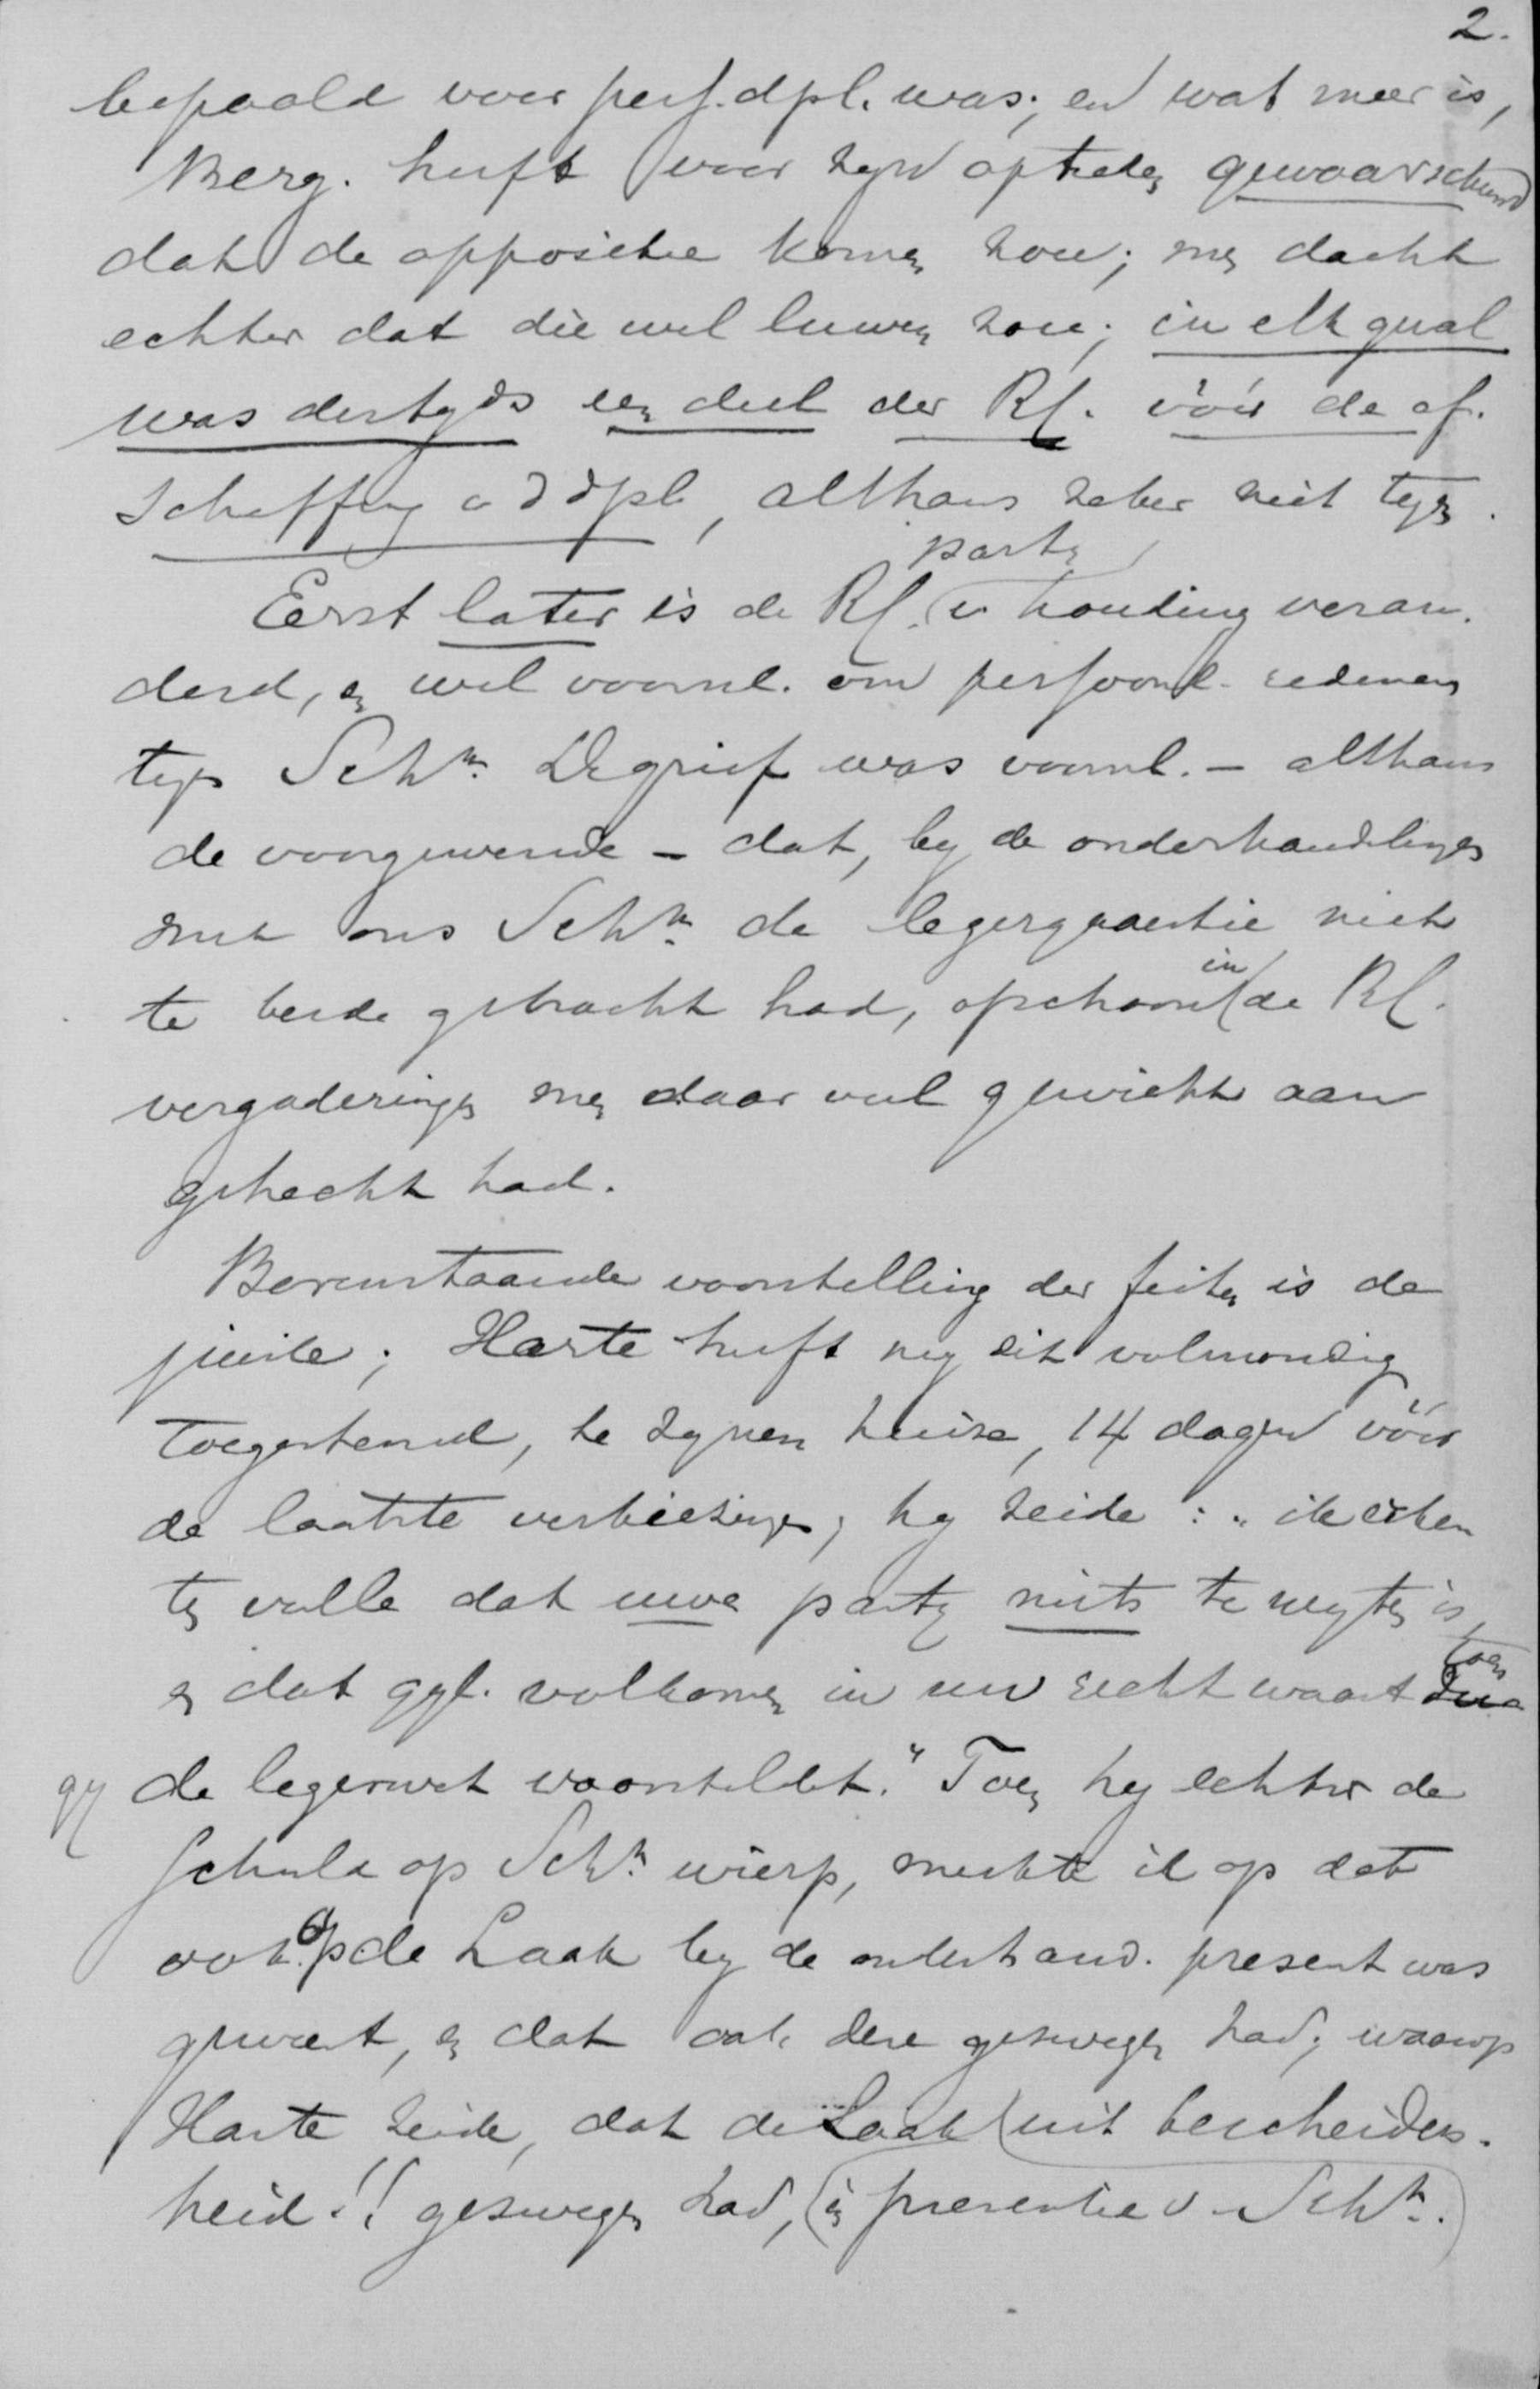 2.
bepaald voor pers. dpl. was; en wat meer is,
Berg. heeft voor zijn optreden gewaarschuwd
dat de oppositie komen zou; men dacht
echter dat die wel luwen zou; in elk geval
was destijds een deel der Rk. vóór de af-
schaffing v d dpl, althans zeker niet tegen.
party
Eerst later is de Rk. v houding veran-
derd, en wel voornl. om persoonl. redenen
tegen Schn. De grief was voornl. - althans
de voorgewende - dat, bij de onderhandelingen
met ons Schn. de legerquaestie niet
te berde gebracht had, ofschoon in de Rk.
vergaderingen men daar veel gewicht aan
gehecht had.
Bovenstaande voorstelling der feiten is de
juiste; Harte heeft mij dit volmondig
toegestemd, te zijnen huize, 14 dagen vóór
de laatste verkiezingen; hij zeide: "ik erken
ten volle dat uwe partij niets te wijten is,
en dat gijl. volkomen in uw recht waart toen
gij de legerwet voorstelldet." Toen hij echter de
schuld op Schn wierp, merkte ik op dat
ook op de Laak bij de onderhand. present was
geweest, en dat ook deze gezwegen had; waarop
Harte zeide, dat de Laak uit bescheiden-
heid!! gezwegen had, (in presentie v. Schn.)